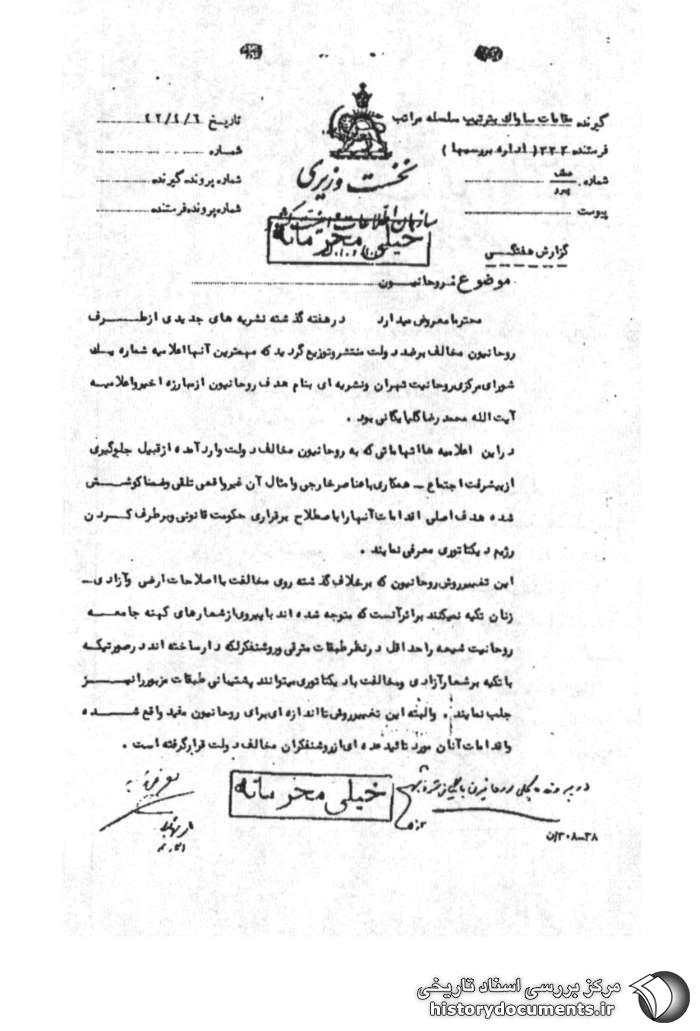 گیرنده مقامات ساواک بترتیب سلسله مراتب
فرستنده ۳۲۲ ( اداره بررسیها )
شماره
عطف
پیرو
پیوست
گزارش هفتگی
نخست وزیری
سازمان اطلاعات و امنیت کشور
خیلی محرمانه
تاریخ ۴۲/۴/۶
شماره
شماره پرونده گیرنده
شماره پرونده فرستنده
موضوع : روحانیون
محترما معروض میدارد در هفته گذشته نشریه های جدیدی از طرف
روحانیون مخالف بر ضد دولت منتشر و توزیع گردید که مهمترین آنها اعلامیه شماره یک
شورای مرکزی روحانیت تهران و نشریه ای بنام هدف روحانیون از مبارزه اخیر و اعلامیه
آیت الله محمد رضا گلپایگانی بود .
در این اعلامیه ها اتهاماتی که به روحانیون مخالف دولت وارد آمده از قبیل جلوگیری
از پیشرفت اجتماع ـ همکاری با عناصر خارجی و امثال آن غیر واقعی تلقی و ضمنا کوشش
شده هدف اصلی اقدامات آنها را باصطلاح برقراری حکومت قانونی و بر طرف کردن
رژیم دیکتاتوری معرفی نمایند .
این تغییر روش روحانیون که بر خلاف گذشته روی مخالفت با اصلاحات ارضی و آزادی ـ
زنان تکیه نمیکنند بر اثر آنست که متوجه شده اند با پیروی از شعارهای کهنه جامعه
روحانیت شیعه را حداقل در نظر طبقات مترقی و روشنفکر لکه دار ساخته اند در صورتیکه
با تکیه بر شعار آزادی و مخالفت با دیکتاتوری میتوانند پشتیبانی طبقات مزبور را نیز
جلب نمایند . والبته این تغییر روش تا اندازه ای برای روحانیون مفید واقع شده
و اقدامات آنان مورد تائید عده ای از روشنفکران مخالف دولت قرار گرفته است .
خیلی محرمانه
در پرونده کلی روحانیون بایگانی شود
۲۸ــ۳۰۸/ن
مرکز بررسی اسناد تاریخی
historydocuments.ir